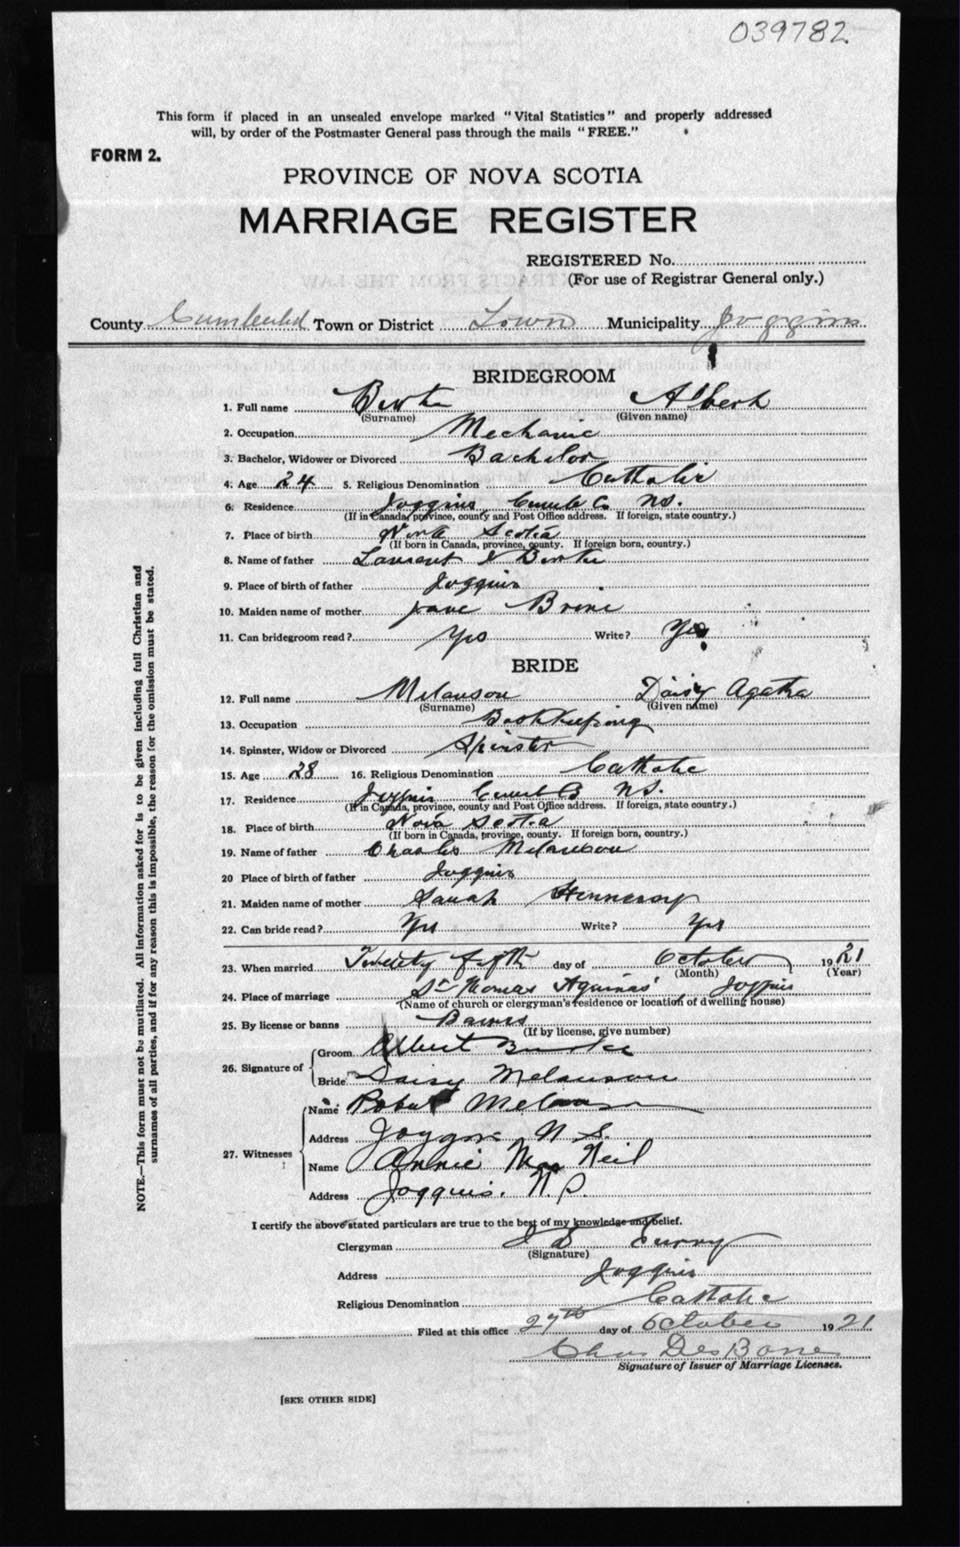 039782
This form if placed in an unsealed envelope marked "Vital Statistics" and properly addressed
will, by order of the Postmaster General pass through the mails "FREE."
FORM 2.
PROVINCE OF NOVA SCOTIA
MARRIAGE REGISTER
REGISTERED No.
(For use of Registrar General only.)
County Cumberland Town or District Town Municipality Joggins
BRIDEGROOM
1. Full name Albert
(Surname) (Given name)
2. Occupation Mechanic
3. Bachelor, Widower or Divorced Bachelor
4. Age 24 5. Religious Denomination Catholic
6. Residence Joggins Cumb Co. NS.
(If in Canada, province, county and Post Office address. If foreign, state country.)
7. Place of birth Scotia
(If born in Canada, province, county. If foreign born, country.)
8. Name of father
9. Place of birth of father Joggins
10. Maiden name of mother Jane
11. Can bridegroom read? Yes Write? Yes
BRIDE
12. Full name Melanson Daisy Agatha
(Surname) (Given name)
13. Occupation Bookkeeping
14. Spinster, Widow or Divorced Spinster
15. Age 28 16. Religious Denomination Catholic
17. Residence Joggins NS.
(If in Canada, province, county and Post Office address. If foreign, state country.)
18. Place of birth Nova Scotia
(If born in Canada, province, county. If foreign born, country.)
19. Name of father Charles Melanson
20 Place of birth of father Joggins
21. Maiden name of mother Sarah Hennessy
22. Can bride read? Yes Write? Yes
23. When married Twenty fifth day of October 1921
(Month) (Year)
24. Place of marriage St Thomas Aquinas Joggins
(Name of church or clergyman's residence or location of dwelling house)
25. By license or banns Banns
(If by license, give number)
26. Signature of Groom Albert Burke
Bride Daisy Melanson
27. Witnesses Name Robert Melanson
Address Joggins N S.
Name Annie Mac Neil
Address Joggins, N.S.
I certify the above stated particulars are true to the best of my knowledge and belief.
Clergyman Curry
(Signature)
Address Joggins
Religious Denomination Catholic
Filed at this office 27th day of October 1921
Chas
Signature of Issuer of Marriage Licenses.
[SEE OTHER SIDE]
NOTE.—This form must not be mutilated. All information asked for is to be given including full Christian and
surnames of all parties, and if for any reason this is impossible, the reason for the omission must be stated.